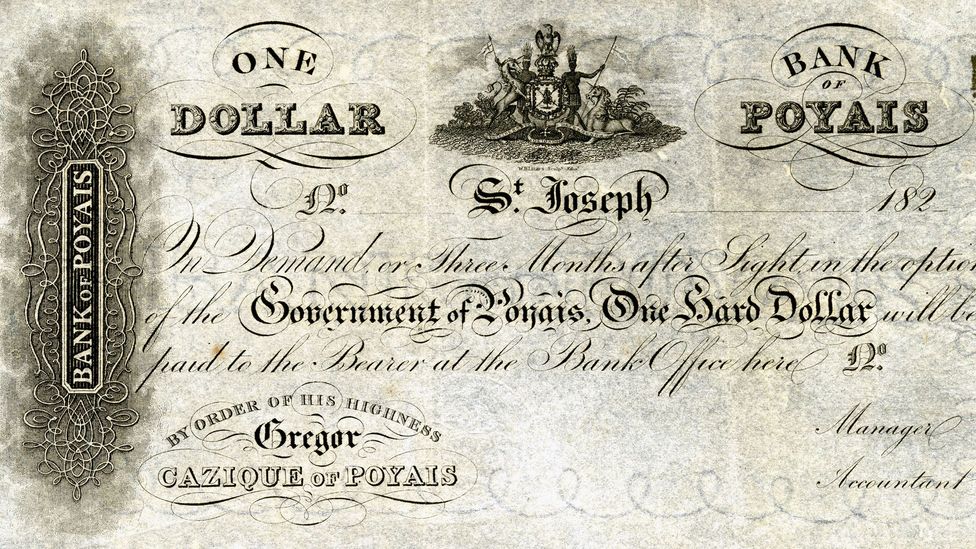 BANK OF POYAIS
ONE
DOLLAR
BANK
OF
POYAIS
No.
St. Joseph
182
On Demand, or Three Months after Sight, in the option
of the Government of Poyais, One Hard Dollar will be
paid to the Bearer at the Bank Office here No.
BY ORDER OF HIS HIGHNESS
Gregor
CAZIQUE OF POYAIS
Manager
Accountant